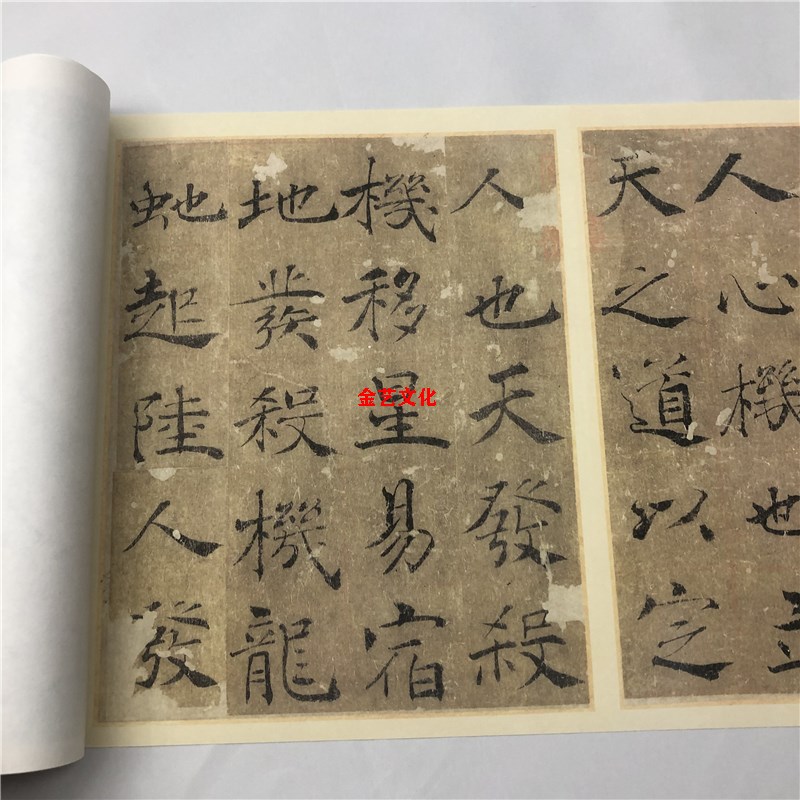 人心機也立
天之道以定
人也天發殺
機移星易宿
地發殺機龍
虵起陸人發
金艺文化